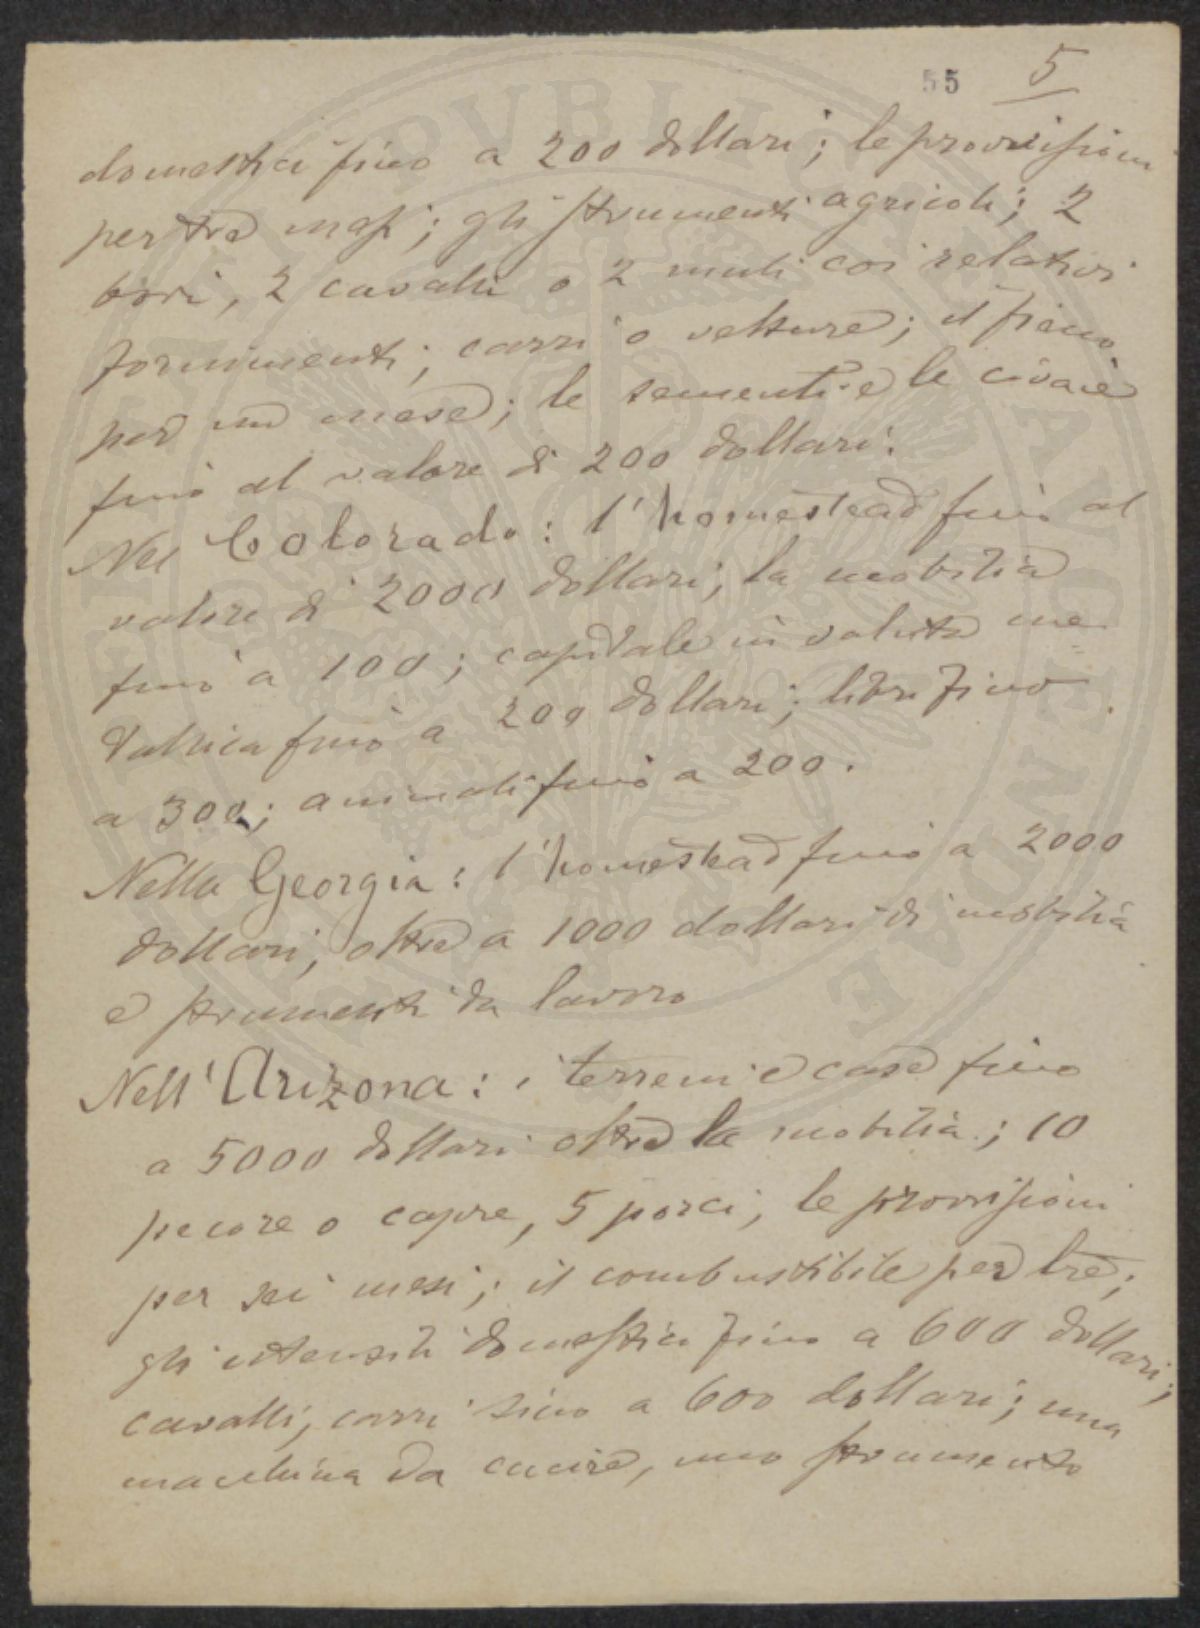 55 5
domestici fino a 200 dollari; le provvisioni
per tre mesi; gli strumenti agricoli; 2
bovi, 2 cavalli o 2 muli coi relativi
fornimenti; carri o vetture; il fieno
per un mese; le sementi e le civaie
fino al valore di 200 dollari.
Nel Colorado: l'homestead fino al
valore di 2000 dollari; la mobilia
fino a 100; capitale in valuta me-
tallica fino a 200 dollari; libri fino
a 300; animali fino a 200.
Nella Georgia: l'homestead fino a 2000
dollari, oltre a 1000 dollari di mobilia
e strumenti da lavoro
Nell'Arizona: i terreni e case fino
a 5000 dollari oltre la mobilia; 10
pecore o capre, 5 porci, le provvisioni
per sei mesi; il combustibile per tre;
gli utensili domestici fino a 600 dollari;
cavalli, carri sino a 600 dollari; una
macchina da cucire, uno strumento